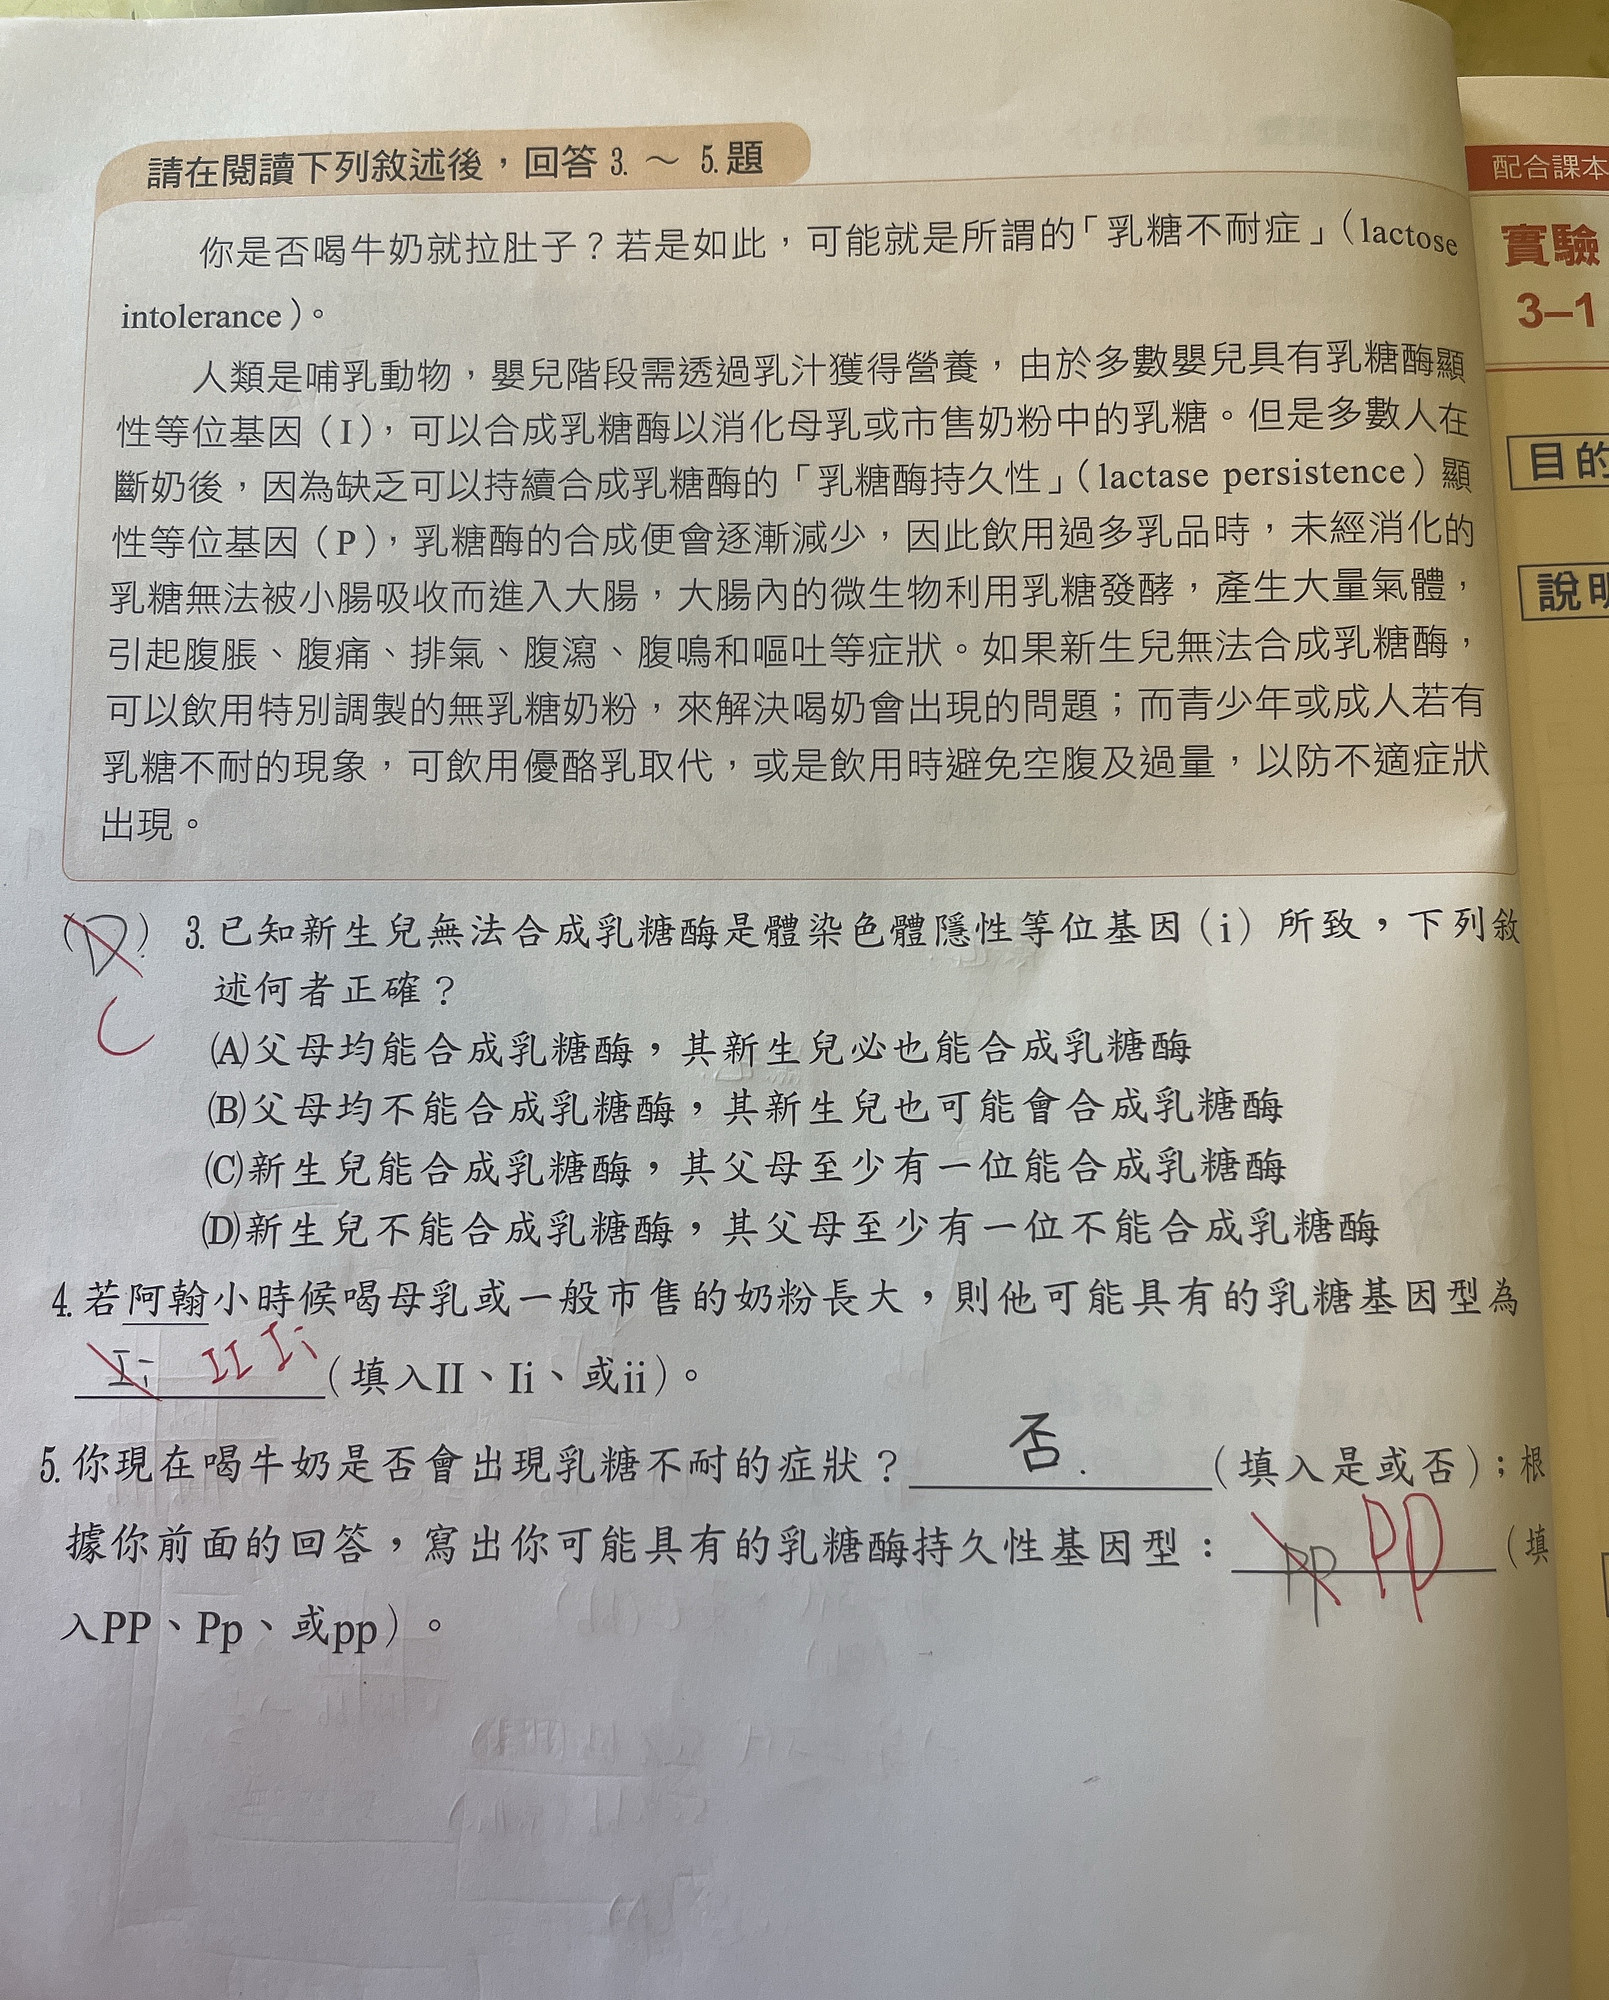 請在閱讀下列敘述後，回答3. ～ 5.題
你是否喝牛奶就拉肚子？若是如此，可能就是所謂的「乳糖不耐症」（lactose
intolerance）。
人類是哺乳動物，嬰兒階段需透過乳汁獲得營養，由於多數嬰兒具有乳糖酶顯
性等位基因（I），可以合成乳糖酶以消化母乳或市售奶粉中的乳糖。但是多數人在
斷奶後，因為缺乏可以持續合成乳糖酶的「乳糖酶持久性」（lactase persistence）顯
性等位基因（P），乳糖酶的合成便會逐漸減少，因此飲用過多乳品時，未經消化的
乳糖無法被小腸吸收而進入大腸，大腸內的微生物利用乳糖發酵，產生大量氣體，
引起腹脹、腹痛、排氣、腹瀉、腹鳴和嘔吐等症狀。如果新生兒無法合成乳糖酶，
可以飲用特別調製的無乳糖奶粉，來解決喝奶會出現的問題；而青少年或成人若有
乳糖不耐的現象，可飲用優酪乳取代，或是飲用時避免空腹及過量，以防不適症狀
出現。
(D) 3. 已知新生兒無法合成乳糖酶是體染色體隱性等位基因（i）所致，下列敘
C 述何者正確？
(A)父母均能合成乳糖酶，其新生兒必也能合成乳糖酶
(B)父母均不能合成乳糖酶，其新生兒也可能會合成乳糖酶
(C)新生兒能合成乳糖酶，其父母至少有一位能合成乳糖酶
(D)新生兒不能合成乳糖酶，其父母至少有一位不能合成乳糖酶
4. 若阿翰小時候喝母乳或一般市售的奶粉長大，則他可能具有的乳糖基因型為
Ii II Ii（填入II、Ii、或ii）。
5. 你現在喝牛奶是否會出現乳糖不耐的症狀？否.（填入是或否）；根
據你前面的回答，寫出你可能具有的乳糖酶持久性基因型：PP Pp（填
入PP、Pp、或pp）。
配合課本
實驗
3–1
目的